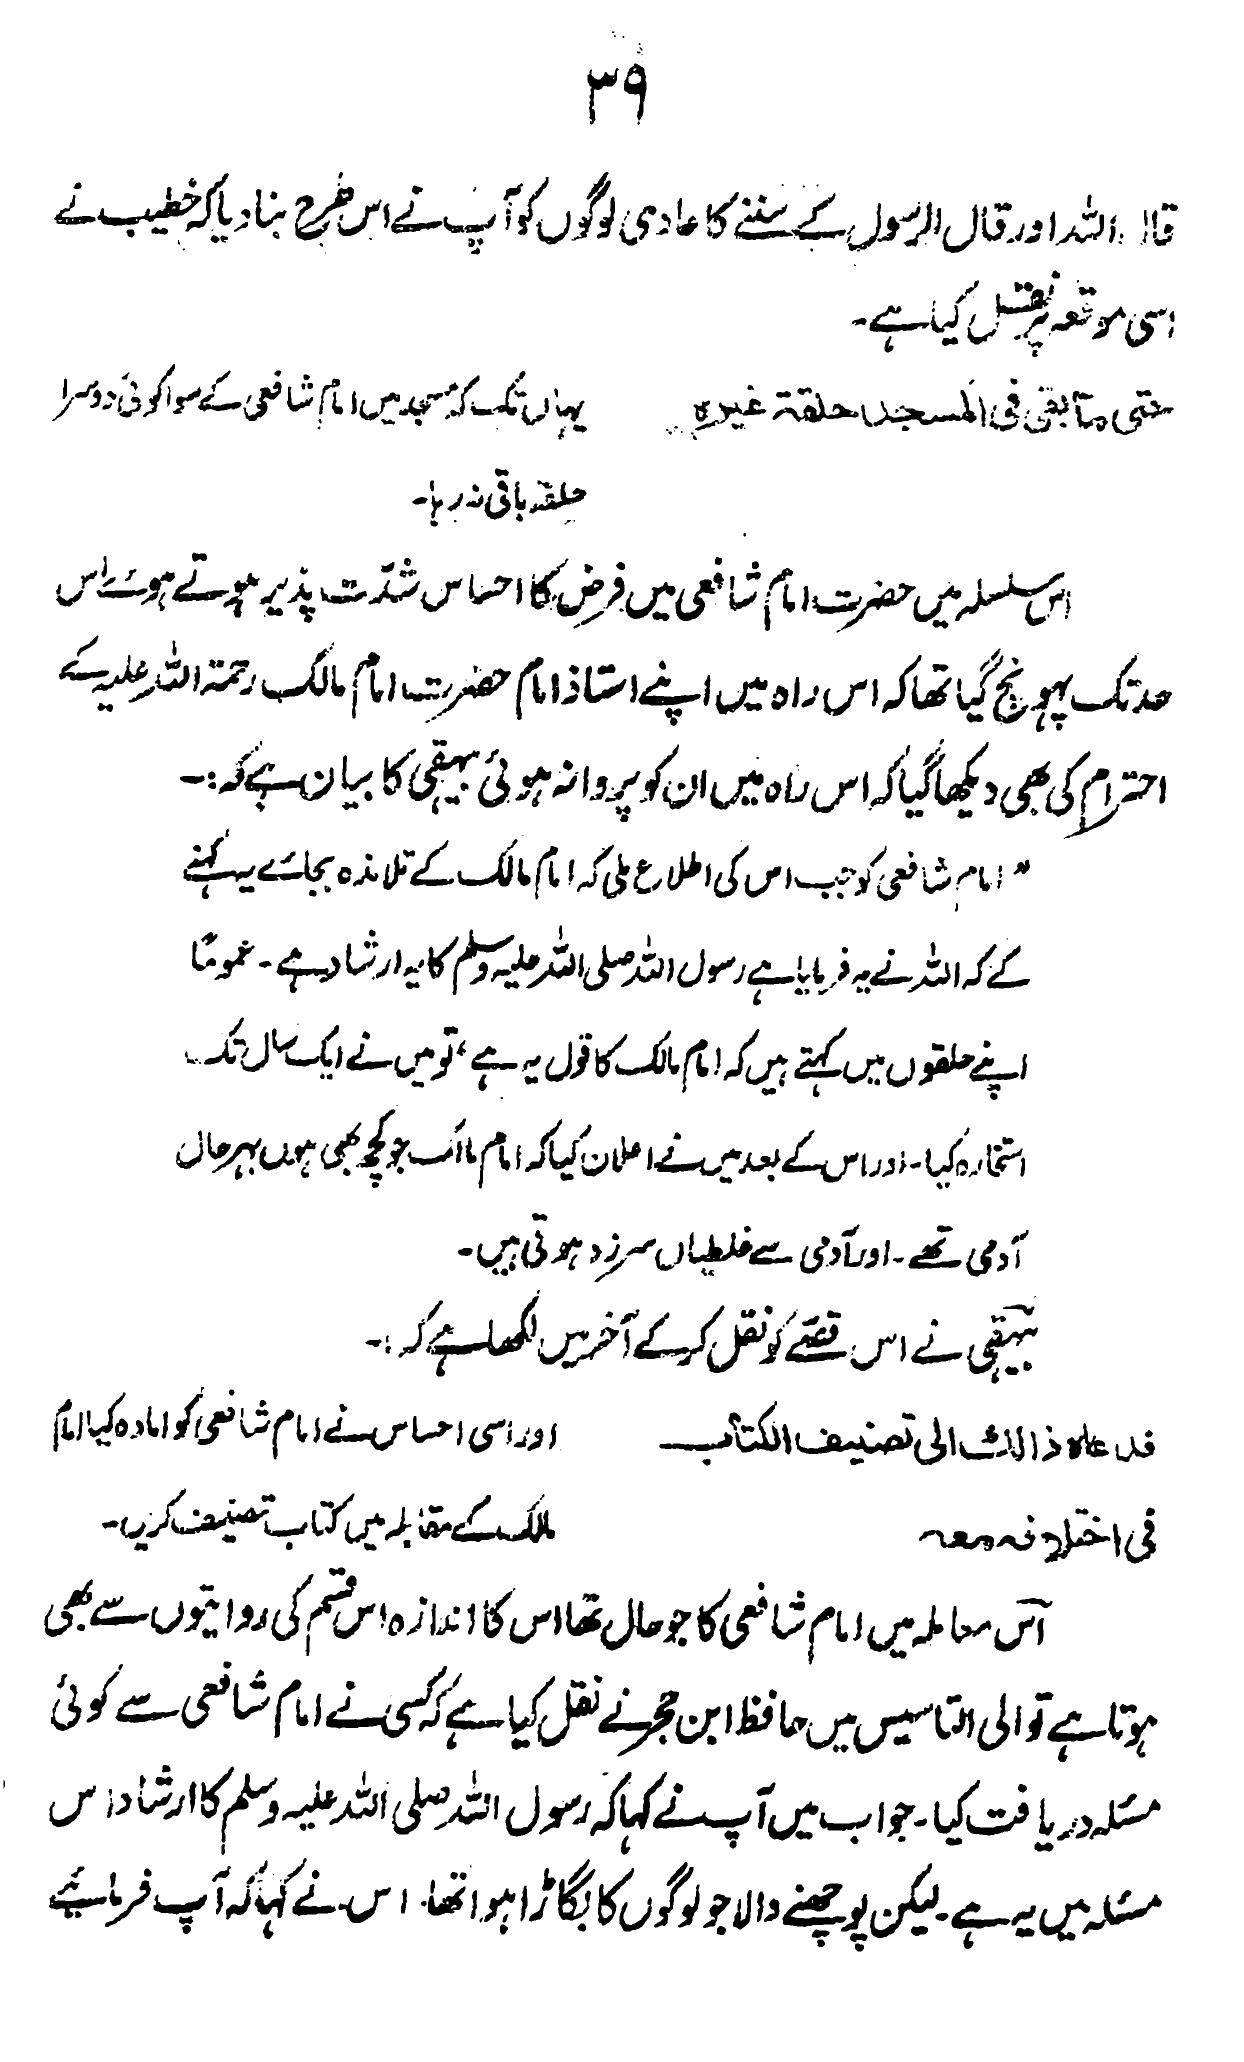 ۳۹
قال اللہ اور قال الرسول کے سننے کا عادی لوگوں کو آپ نے اس طرح بنا دیا کہ خطیب نے
اسی موقعہ پر نقل کیا ہے۔
حتی ما بقی فی المسجد حلقة غیرہ
یہاں تک کہ مسجد میں امام شافعی کے سوا کوئی دوسرا
حلقہ باقی نہ رہا۔
اس سلسلہ میں حضرت امام شافعی میں فرض کا احساس شدّت پذیر ہوتے ہوئے اس
حد تک پہونچ گیا تھا کہ اس راہ میں اپنے استاذ امام حضرت امام مالک رحمۃ اللہ علیہ کے
احترام کی بھی دیکھا گیا کہ اس راہ میں ان کو پروا نہ ہوئی بیہقی کا بیان ہے کہ:۔
"امام شافعی کو جب اس کی اطلاع ملی کہ امام مالک کے تلامذہ بجائے یہ کہنے
کے کہ اللہ نے یہ فرمایا ہے رسول اللہ صلی اللہ علیہ وسلم کا یہ ارشاد ہے۔ عمومًا
اپنے حلقوں میں کہتے ہیں کہ امام مالک کا قول یہ ہے، تو میں نے ایک سال تک
استخارہ کیا۔ اور اس کے بعد میں نے اعلان کیا کہ امام مالک جو کچھ بھی ہوں بہر حال
آدمی تھے۔ اور آدمی سے غلطیاں سرزد ہوتی ہیں۔
بیہقی نے اس قصّے کو نقل کر کے آخر میں لکھا ہے کہ:۔
فدعاہ ذالک الی تصنیف الکتاب
اور اسی احساس نے امام شافعی کو امادہ کیا امام
فی اختلافہ معہ
مالک کے مقابلہ میں کتاب تصنیف کریں۔
اس معاملہ میں امام شافعی کا جو حال تھا اس کا اندازہ اس قسم کی روایتوں سے بھی
ہوتا ہے توالی التاسیس میں حافظ ابن حجر نے نقل کیا ہے کہ کسی نے امام شافعی سے کوئی
مسئلہ دریافت کیا۔ جواب میں آپ نے کہا کہ رسول اللہ صلی اللہ علیہ وسلم کا ارشاد اس
مسئلہ میں یہ ہے۔ لیکن پوچھنے والا جو لوگوں کا بگاڑا ہوا تھا۔ اس نے کہا کہ آپ فرمائیے